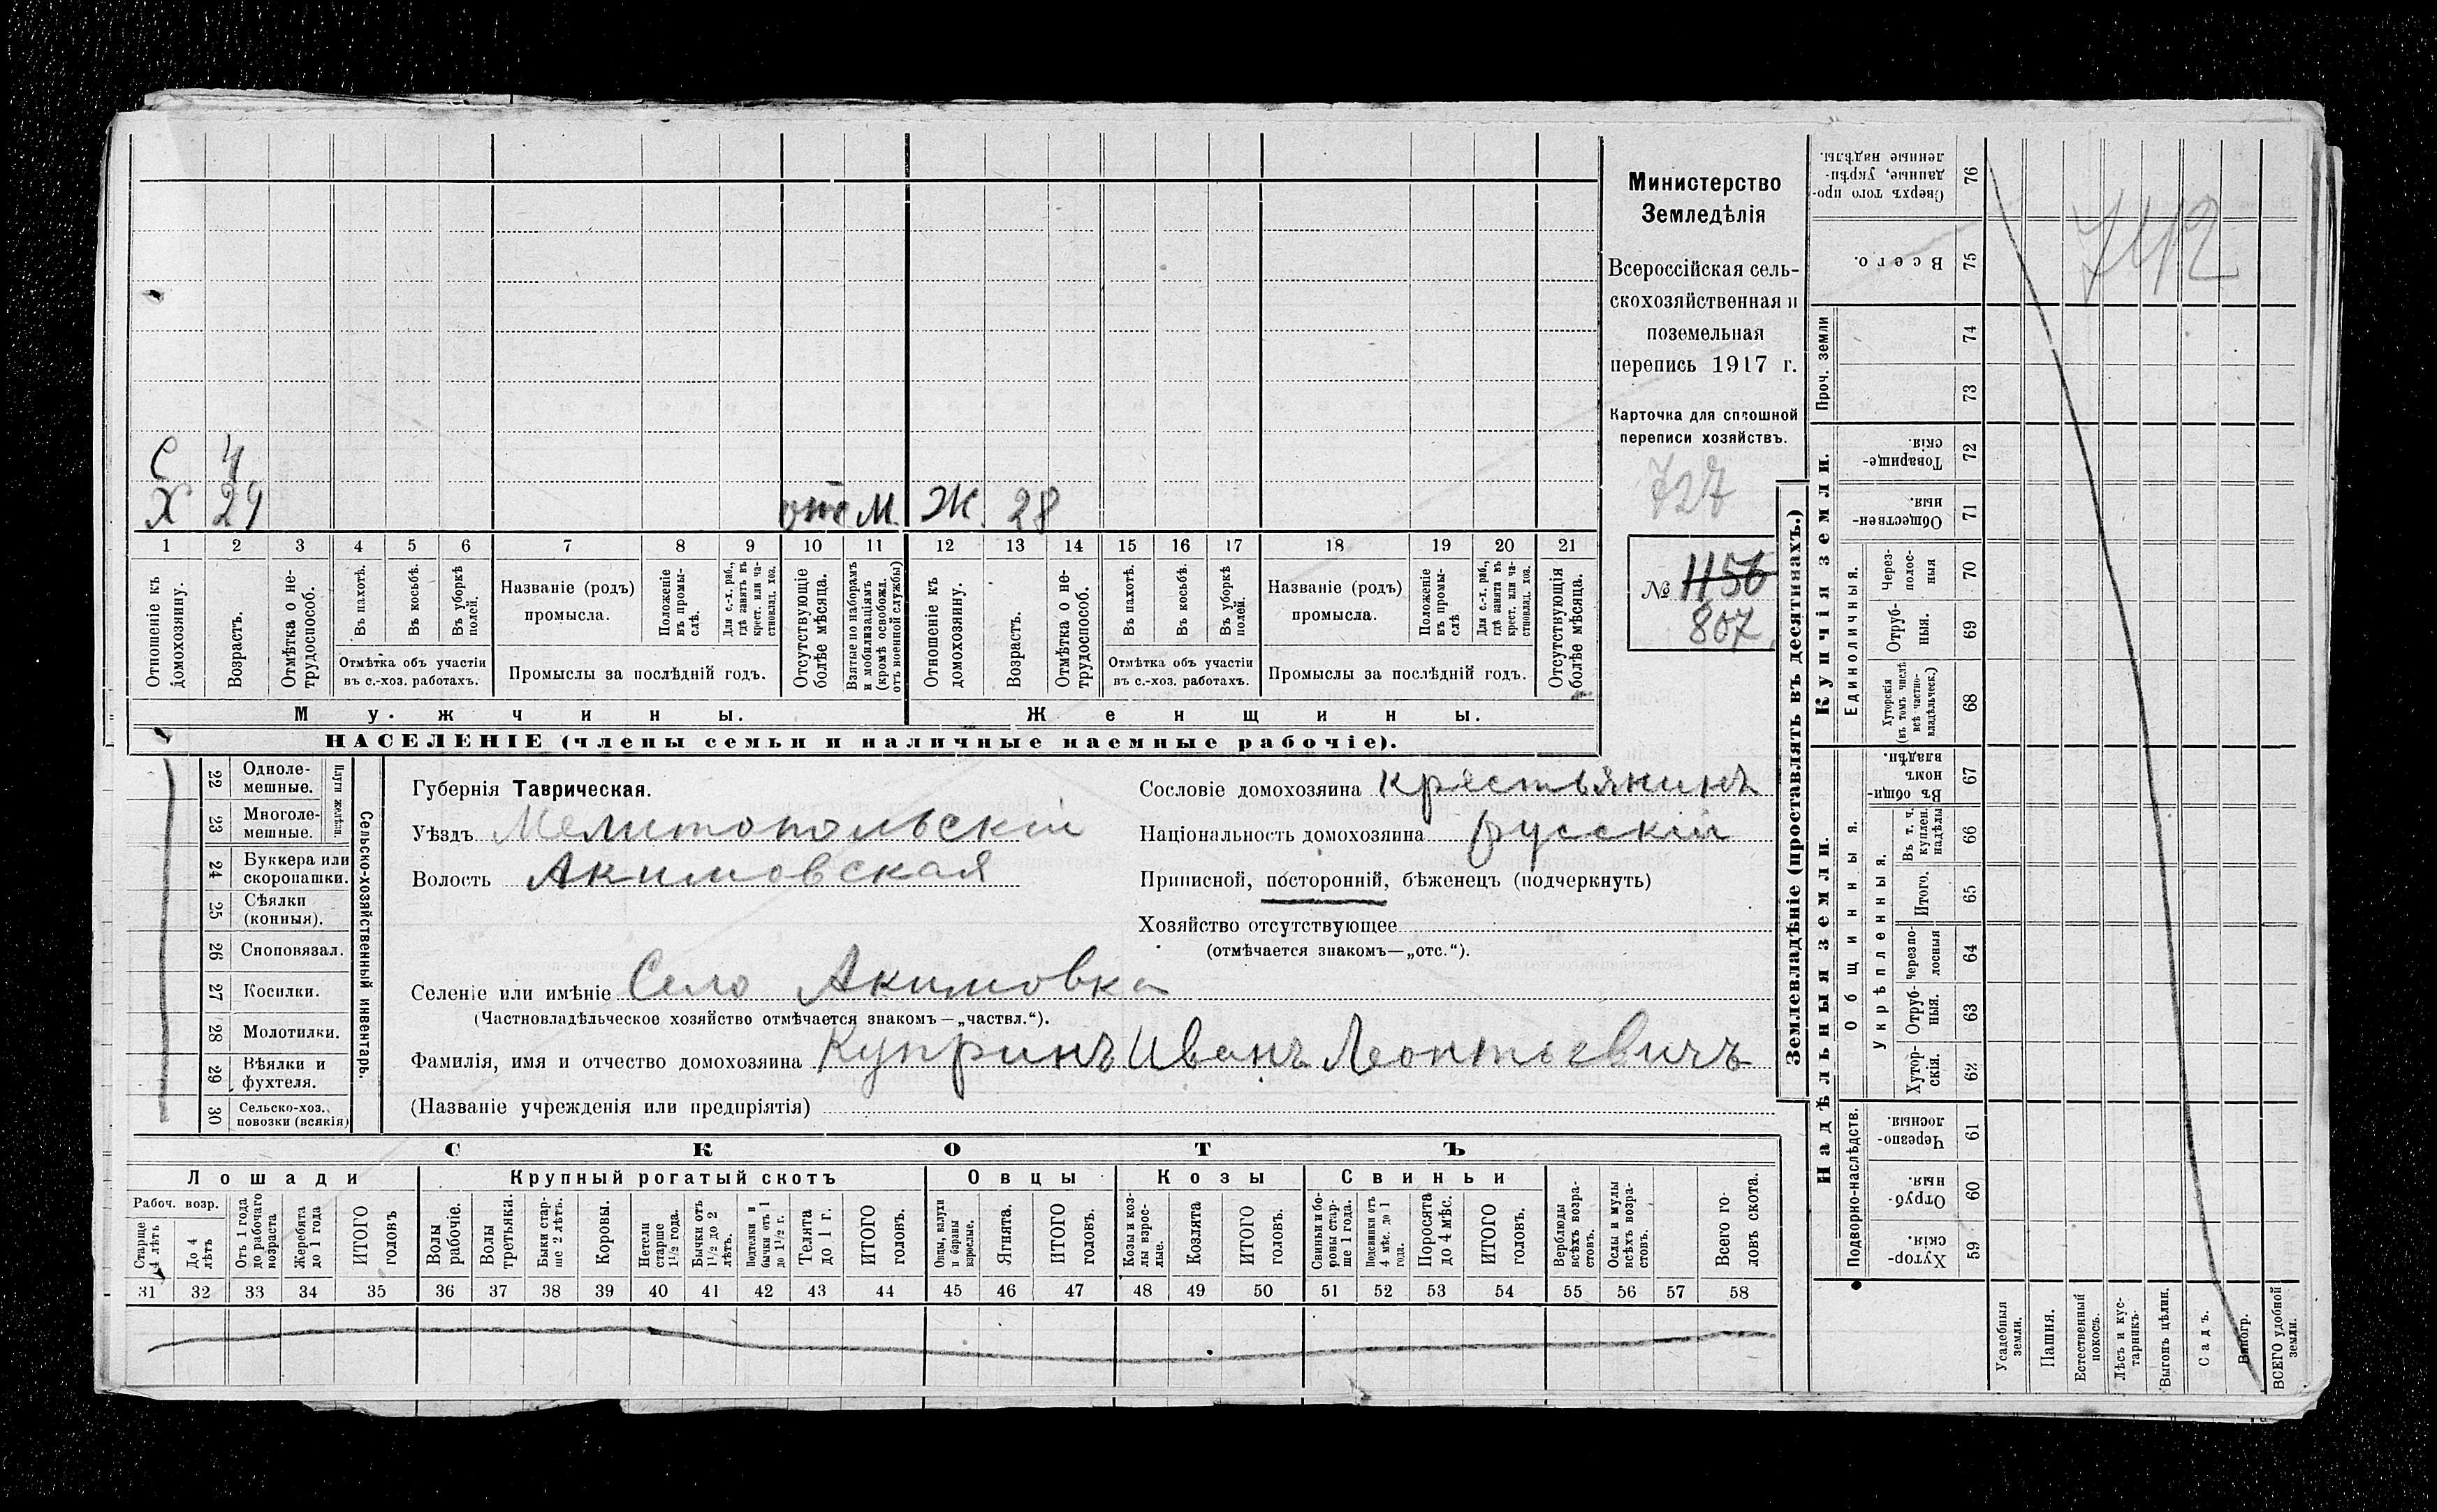 Министерство
Земледѣлія
Всероссійская сель-
скохозяйственная и
поземельная
перепись 1917 г.
Карточка для сплошной
переписи хозяйствъ.
727
№ 1156
807
С 4
Х 29 отс М. Ж. 28
1 2 3 4 5 6 7 8 9 10 11 12 13 14 15 16 17 18 19 20 21
Отношеніе къ домохозяину.
Возрастъ.
Отмѣтка о не-трудоспособ.
Въ пахотѣ.
Въ косьбѣ.
Въ уборкѣ полей.
Отмѣтка объ участіи
въ с.-хоз. работахъ.
Названіе (родъ)
промысла.
Положеніе въ промы-слѣ.
Для с.-х. раб., гдѣ занятъ въ крест. или ча-стновлад. хоз.
Промыслы за послѣдній годъ.
Отсутствующіе болѣе мѣсяца.
Взятые по наборамъ и мобилизаціямъ (кромѣ освобожд. отъ военной службы)
Отношеніе къ домохозяину.
Возрастъ.
Отмѣтка о не-трудоспособ.
Въ пахотѣ.
Въ косьбѣ.
Въ уборкѣ полей.
Отмѣтка объ участіи
въ с.-хоз. работахъ.
Названіе (родъ)
промысла.
Положеніе въ промы-слѣ
Для с.-х. раб., гдѣ занята въ крест. или ча-стновлад. хоз.
Промыслы за послѣдній годъ.
Отсутствующія болѣе мѣсяца.
Мужчины.
Женщины.
НАСЕЛЕНІЕ (члены семьи и наличные наемные рабочіе).
Сельско-хозяйственный инвентарь.
Плуги желѣзн.
22 Одноле-
мешные.
23 Многоле-
мешные.
24 Буккера или
скоропашки.
25 Сѣялки
(конныя).
26 Сноповязал.
27 Косилки.
28 Молотилки.
29 Вѣялки и
фухтеля.
30 Сельско-хоз.
повозки (всякія)
Губернія Таврическая.
Уѣздъ Мелитопольскій
Волость Акимовская
Сословіе домохозяина крестьянинъ
Національность домохозяина русскій
Приписной, посторонній, бѣженецъ (подчеркнуть)
Хозяйство отсутствующее
(отмѣчается знакомъ—„отс.“).
Селеніе или имѣніе Село Акимовка
(Частновладѣльческое хозяйство отмѣчается знакомъ—„частвл.“).
Фамилія, имя и отчество домохозяина Купринъ Иванъ Леонтьевичъ
(Названіе учрежденія или предпріятія)
СКОТЪ
Лошади Крупный рогатый скотъ Овцы Козы Свиньи
Рабоч. возр.
Старше 4 лѣтъ
До 4 лѣтъ
Отъ 1 года до рабочаго возраста
Жеребята до 1 года
ИТОГО головъ
Волы рабочіе.
Волы третьяки.
Быки стар-ше 2 лѣтъ.
Коровы.
Нетели старше 1½ года.
Бычки отъ 1½ до 2 лѣтъ.
Подтелки и бычки отъ 1 до 1½ г.
Телята до 1 г.
ИТОГО головъ.
Овцы, валухи и бараны взрослые.
Ягнята.
ИТОГО головъ.
Козы и коз-лы взрос-лые.
Козлята
ИТОГО головъ.
Свиньи и бо-ровы стар-ше 1 года.
Подсвинки отъ 4 мѣс. до 1 года.
Поросята до 4 мѣс.
ИТОГО головъ.
Верблюды всѣхъ возра-стовъ.
Ослы и мулы всѣхъ возра-стовъ.
Всего го-ловъ скота.
31 32 33 34 35 36 37 38 39 40 41 42 43 44 45 46 47 48 49 50 51 52 53 54 55 56 57 58
Землевладѣніе (проставлять въ десятинахъ.)
742
Сверхъ того про-данные, укрѣп-ленные надѣлы. 76
Всего. 75
Проч. земли
74
73
Купчія земли.
Товарище-скія. 72
Обществен-ныя. 71
Единоличныя.
Черес-полос-ныя 70
Отруб-ныя. 69
Хуторскія (въ томъ числѣ всѣ частно-владѣльческ.) 68
Надѣльныя земли.
Общинныя.
Въ общи-номъ владѣн. 67
Укрѣпленныя.
Въ т. ч. куплен. надѣлы 66
Итого. 65
Черезпо-лосныя 64
Отруб-ныя. 63
Хутор-скія. 62
Подворно-наслѣдств.
Черезпо-лосныя 61
Отруб-ныя. 60
Хутор-скія. 59
Усадебныя земли.
Пашня.
Естественный покосъ.
Лѣсъ и кус-тарникъ.
Выгонъ цѣлин.
Садъ.
Виногр.
ВСЕГО удобной земли.